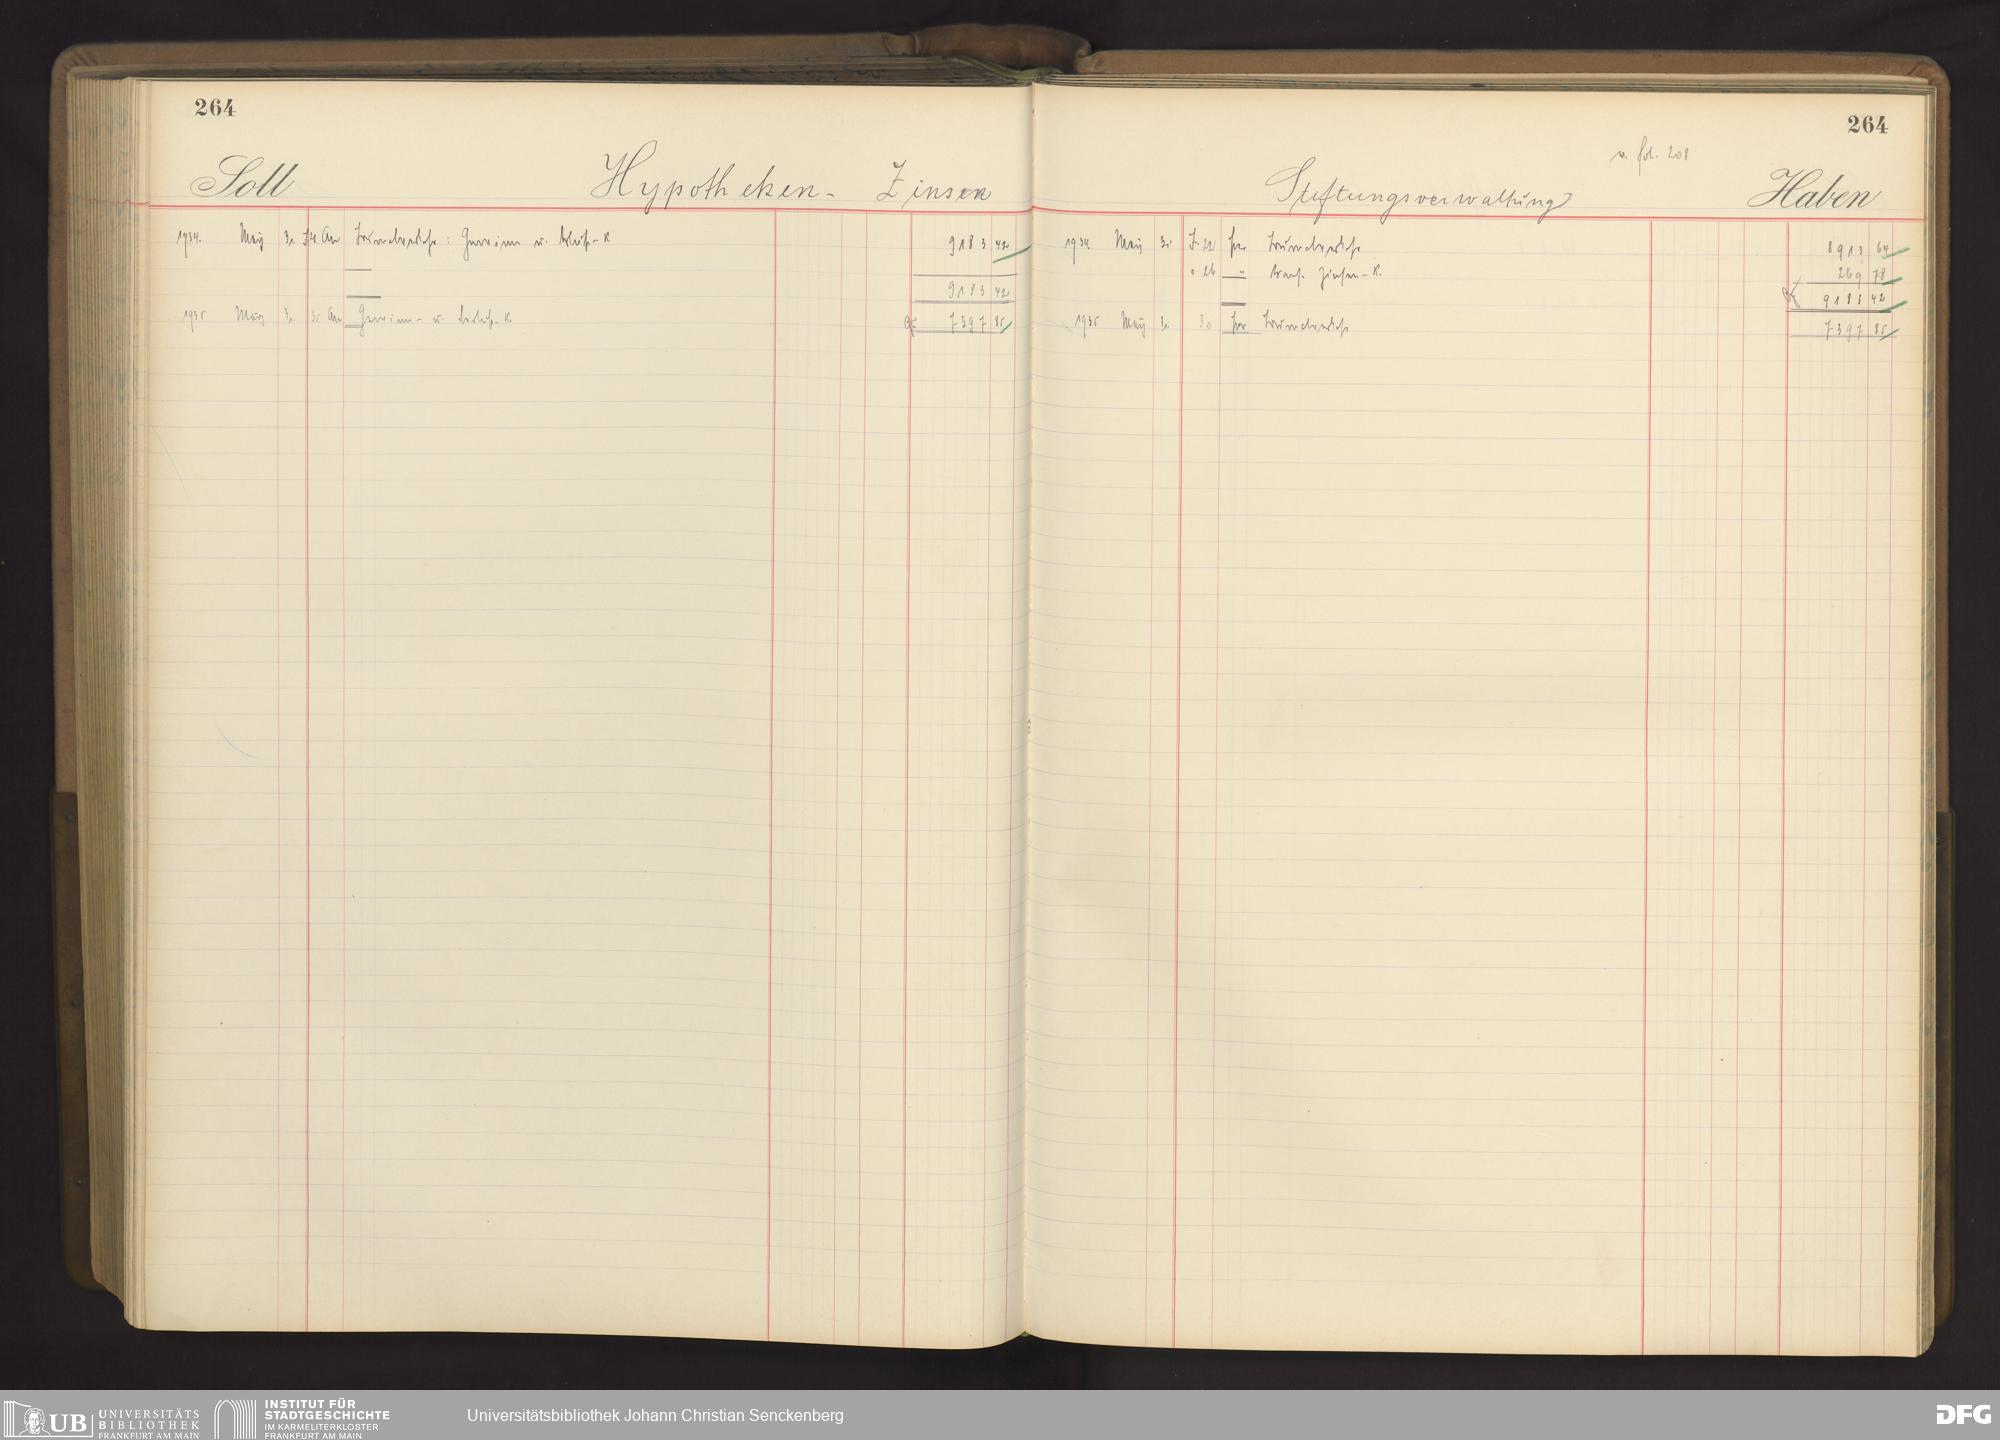 264
Soll Hypotheken- Zinsen
1934. März 31 An : Gewinn u. Verlust-K 9183 42
9183 42
1935 März 31 35 An Gewinn- u. Verlust-K 7597 85
264
v. fol. 208
Stiftungsverwaltung Haben
1934 März 31 J 22 per 8913 64
" 26 " trans. Zinsen-K. 269 78
9183 42
1935 März 31 30 per 7597 85
UB UNIVERSITÄTS
BIBLIOTHEK
FRANKFURT AM MAIN
INSTITUT FÜR
STADTGESCHICHTE
IM KARMELITERKLOSTER
FRANKFURT AM MAIN
Universitätsbibliothek Johann Christian Senckenberg
DFG